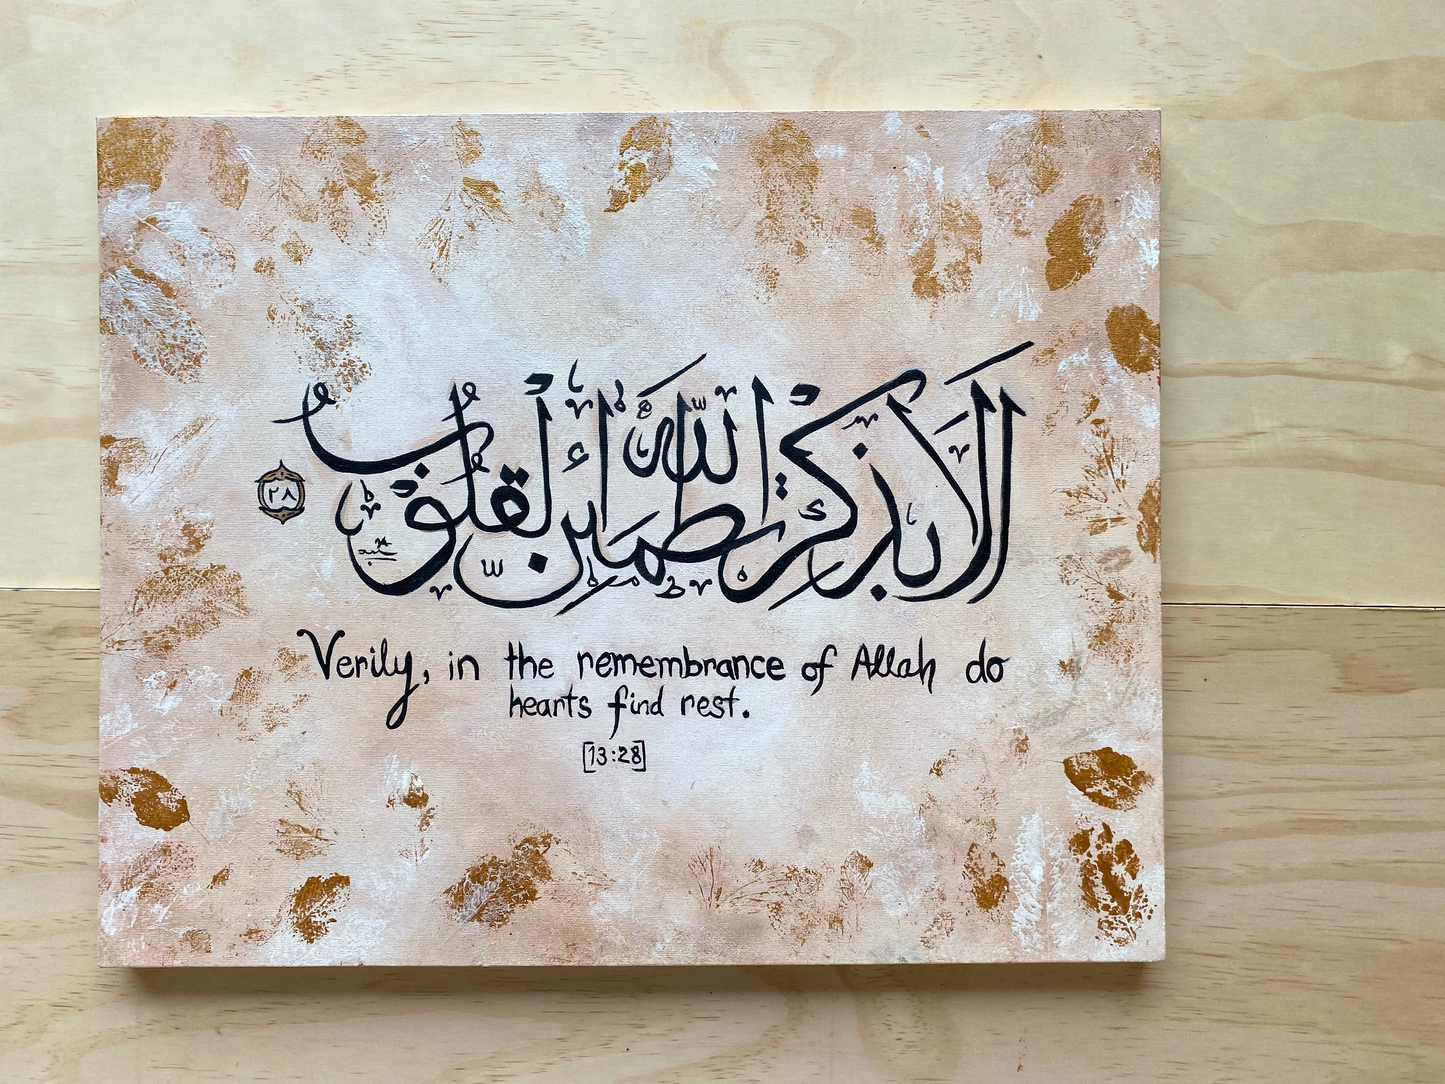 أَلَا بِذِكْرِ اللَّهِ تَطْمَئِنُّ الْقُلُوبُ
٢٨
Verily, in the remembrance of Allah do
hearts find rest.
[13:28]